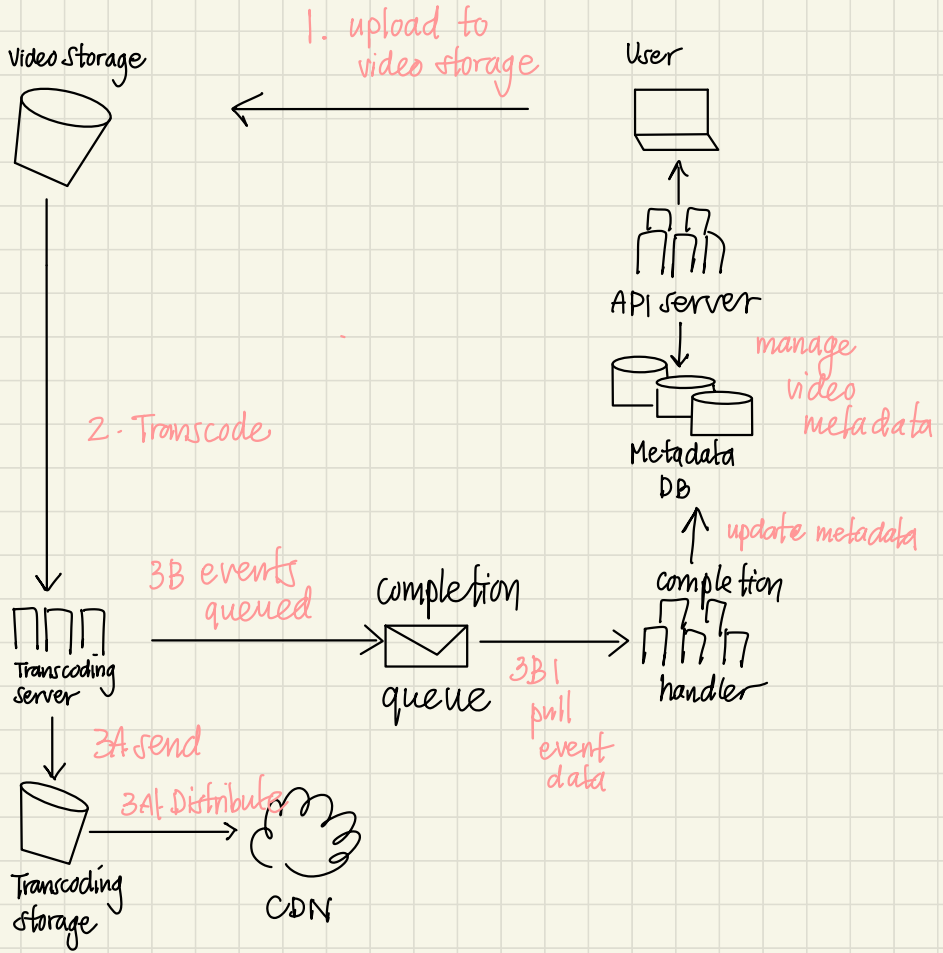 1. upload to
video storage
Video Storage
User
API server
manage
video
metadata
Metadata
DB
2. Transcode
update metadata
3B events
queued
completion
queue
completion
handler
3B1
pull
event
data
Transcoding
server
3A send
3A1 Distribute
Transcoding
storage
CDN